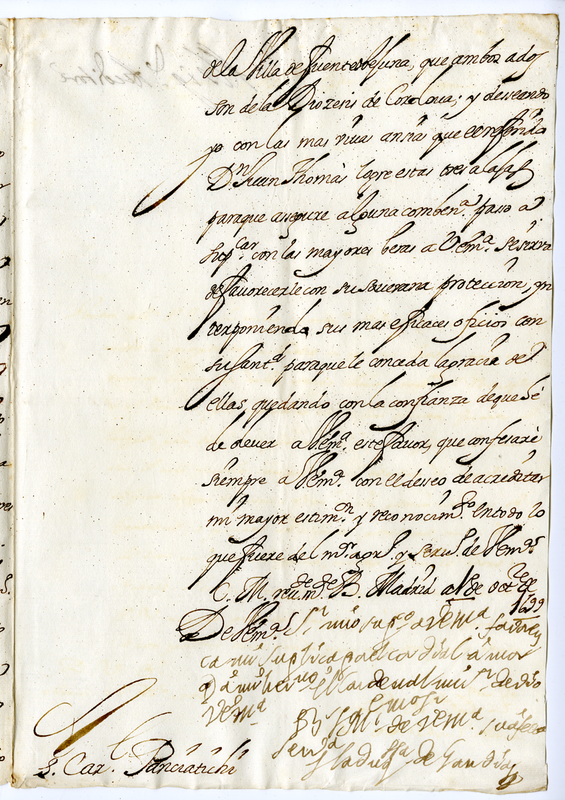 de la Villa de Fuenteobejuna, que ambos ados
son de la Diozesis de Cordova; y desseando
yo con las mas vivas ansias que el referido
Dn. Juan Thomàs logre estas tres alajas
para que asegure alguna combena. paso a
supcar. con las mayores beras a VEma. se sirva
de favorecerle con su soverana proteccion, yn
terponiendo sus mas eficaces oficios con
su Santd. para que le conceda la gracia de
ellas, quedando con la confianza de que hé
de dever a VEma. este favor, que confesaré
siempre a VEma. con el deseo de acreditar
mi mayor estimon. y reconocimto. en todo lo
que fuere del mor. agrdo. y servo. de VEma.
C. M. reu.de m.de B. Madrid a 1 de octre. de
1699
De VEma.
Sr. mio supco a VEma. favorez
ca mi suplica para el cardenal
de Dio
VEma
BLM de VEma. su
serva
La duqsa de Gandia
S. Car. Panciatichi